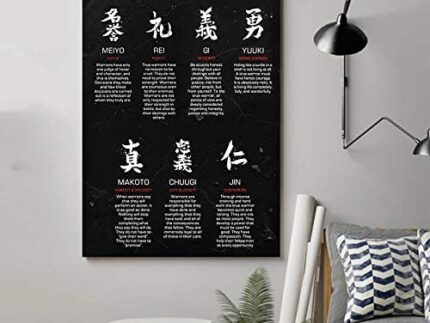 名誉
MEIYO
HONOR
Warriors have only
one judge of honor
and character, and
this is themselves.
Decisions they make
and how these
decisions are carried
out is a reflection of
whom they truly are
礼
REI
RESPECT
True warriors have
no reason to be
cruel. They do not
need to prove their
strength. Warriors
are courteous even
to their enemies.
Warriors are not
only respected for
their strength in
battle, but also by
their dealings with
others
義
GI
INTEGRITY
Be acutely honest
throughout your
dealings with all
people. Believe in
justice, not from
other people, but
from yourself. To the
true warrior, all
points of view are
deeply considered
regarding honesty,
justice and integrity.
勇
YUUKI
HEROIC COURAGE
Hiding like a turtle in a
shell is not living at all.
A true warrior must
have heroic courage.
It is absolutely risky. It
is living life completely,
fully, and wonderfully.
真
MAKOTO
HONESTY & SINCERITY
When warriors say
that they will
perform an action, it
is as good as done.
Nothing will stop
them from
completing what
they say they will do
They do not have to
"give their word"
They do not have to
"promise"
忠義
CHUUGI
DUTY & LOYALTY
Warriors are
responsible for
everything that they
have done and
everything that they
have said and all of
the consequences
that follow. They are
immensely loyal to all
of those in their care.
仁
JIN
COMPASSION
Through intense
training and hard
work the true warrior
becomes quick and
strong. They are not
as most people. They
develop a power that
must be used for
good. They have
compassion. They
help their fellow men
at every opportunity